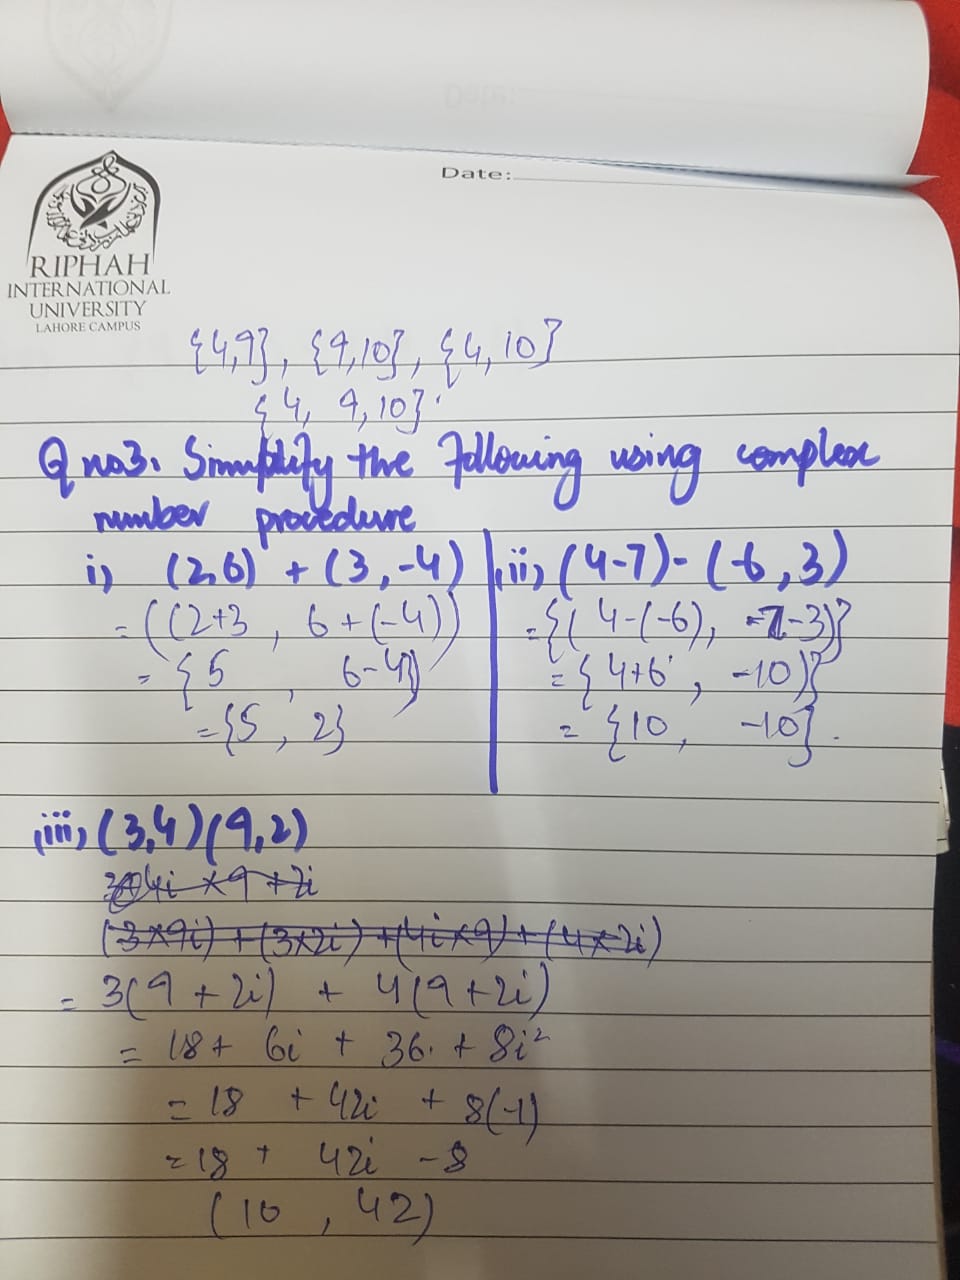 Date:
RIPHAH
INTERNATIONAL
UNIVERSITY
LAHORE CAMPUS
{4,9}, {9,10}, {4,10}
{4, 9,10}.
Q no3. Simplify the following using complex
number procedure
i) (2,6) + (3,-4)
= ((2+3 , 6+(-4))
= {5 , 6-4)}
= {5 , 2}
ii) (4-7)-(-6,3)
= {( 4-(-6), -7-3)}
= { 4+6 , -10)}
= {10, -10}.
iii) (3,4)(9,2)
4i × 9 + 2i
(3×9i) + (3×2i) + (4i×9) + (4×2i)
= 3(9 + 2i) + 4(9+2i)
= 18 + 6i + 36. + 8i²
= 18 + 42i + 8(-1)
= 18 + 42i - 8
(10 , 42)